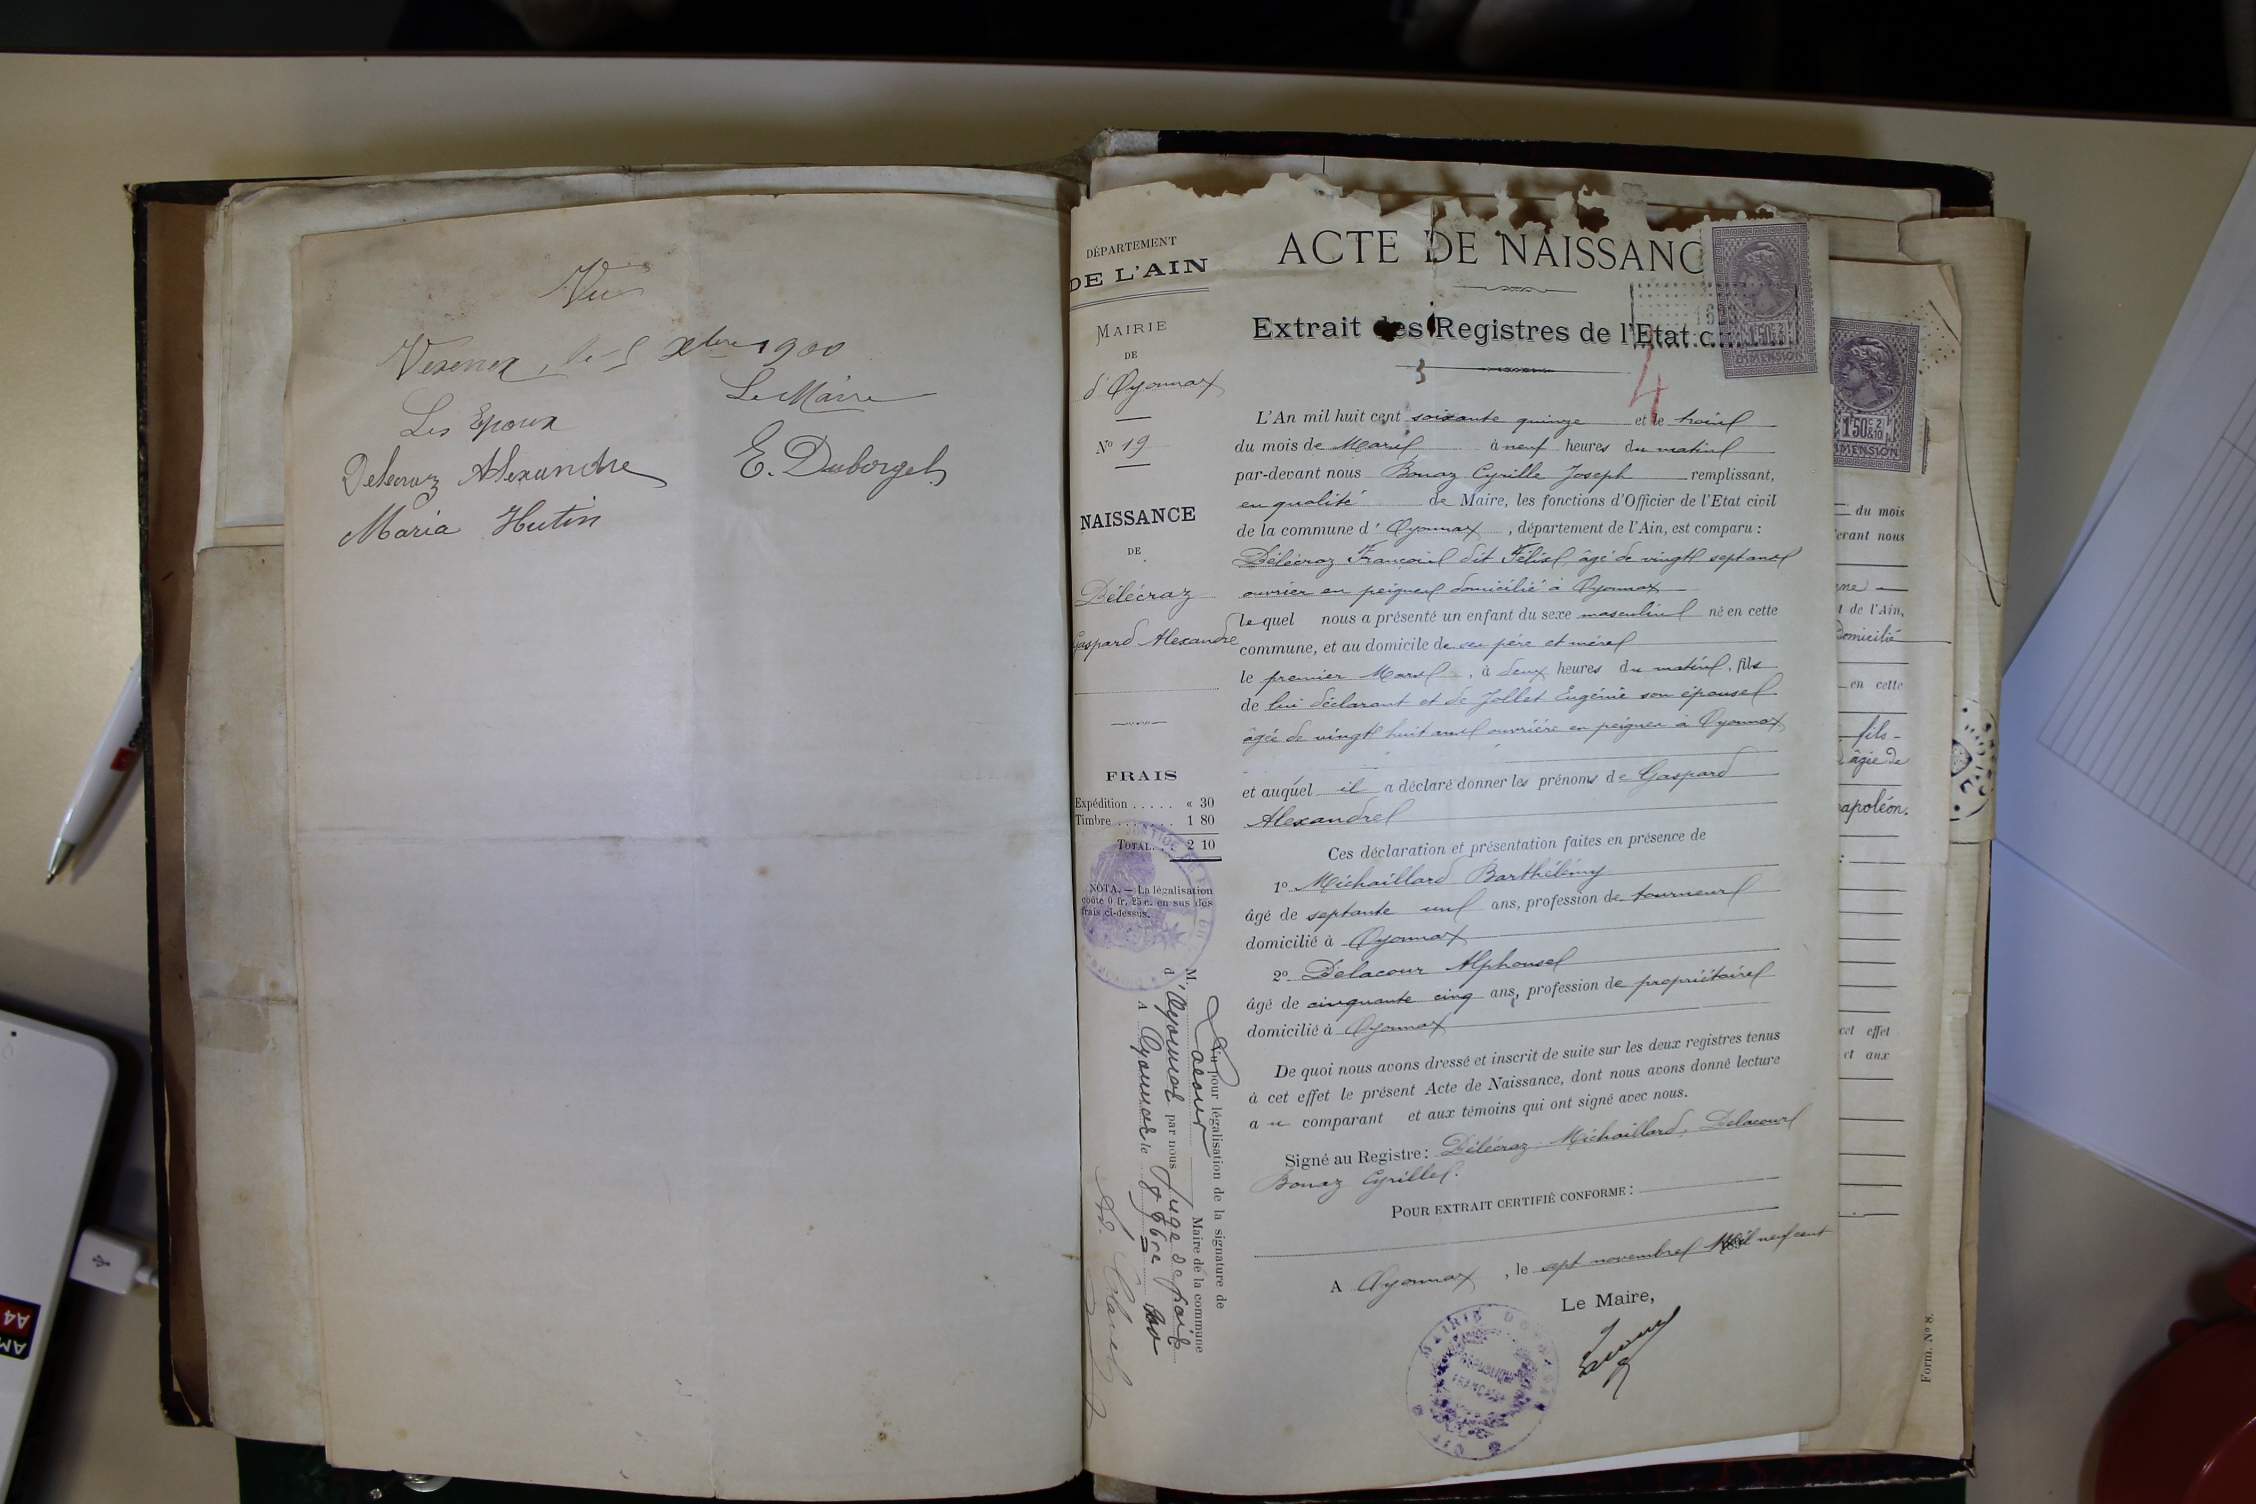 Vu
Vesenex, le 5 Xbre 1900
Les Epoux
Le Maire
Delecraz Alexandre
E. Duborgel
Maria Hutin
DÉPARTEMENT
DE L'AIN
MAIRIE
DE
d'Oyonnax
No 19
NAISSANCE
DE
Délécraz
Gaspard Alexandre
FRAIS
Expédition ..... « 30
Timbre ....... 1 80
TOTAL... 2 10
NOTA. — La légalisation
coûte 0 fr. 25 c. en sus des
frais ci-dessus.
Vu pour légalisation de la signature de
M. Lacour Maire de la commune
d'Oyonnax par nous Juge de paix
A Oyonnax le 8 9bre 1900
ACTE DE NAISSANC
Extrait des Registres de l'Etat c
4
L'An mil huit cent soixante quinze et le trois
du mois de Mars à neuf heures du matin
par-devant nous Bonaz Cyrille Joseph remplissant,
en qualité de Maire, les fonctions d'Officier de l'Etat civil
de la commune d'Oyonnax, département de l'Ain, est comparu :
Délécraz François dit Félix, âgé de vingt sept ans
ouvrier en peignes domicilié à Oyonnax
lequel nous a présenté un enfant du sexe masculin né en cette
commune, et au domicile de ses père et mère
le premier Mars, à deux heures du matin, fils
de lui déclarant et de Jollet Eugénie son épouse
âgée de vingt huit ans ouvrière en peignes à Oyonnax
et auquel il a déclaré donner les prénoms de Gaspard
Alexandre
Ces déclaration et présentation faites en présence de
1o Michaillard Barthélémy
âgé de septante un ans, profession de tourneur
domicilié à Oyonnax
2o Delacour Alphonse
âgé de cinquante cinq ans, profession de propriétaire
domicilié à Oyonnax
De quoi nous avons dressé et inscrit de suite sur les deux registres tenus
à cet effet le présent Acte de Naissance, dont nous avons donné lecture
au comparant et aux témoins qui ont signé avec nous.
Signé au Registre : Délécraz Michaillard, Delacour
Bonaz Cyrille.
POUR EXTRAIT CERTIFIÉ CONFORME :
A Oyonnax, le sept novembre Mil neuf cent
Le Maire,
Lacour
MAIRIE D'OYONNAX
RÉPUBLIQUE
FRANÇAISE
1'50c 2
DIMENSION
1'50 c 2
&10
MENSION
du mois
evant nous
de l'Ain,
domicilié
en cette
fils
âgée de
apoléon.
cet effet
et aux
Form. No 8.
A4